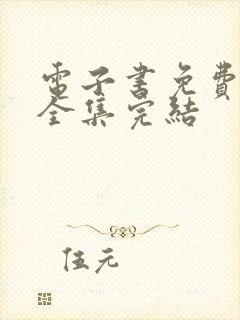 電子書免費
全集完結
伍元